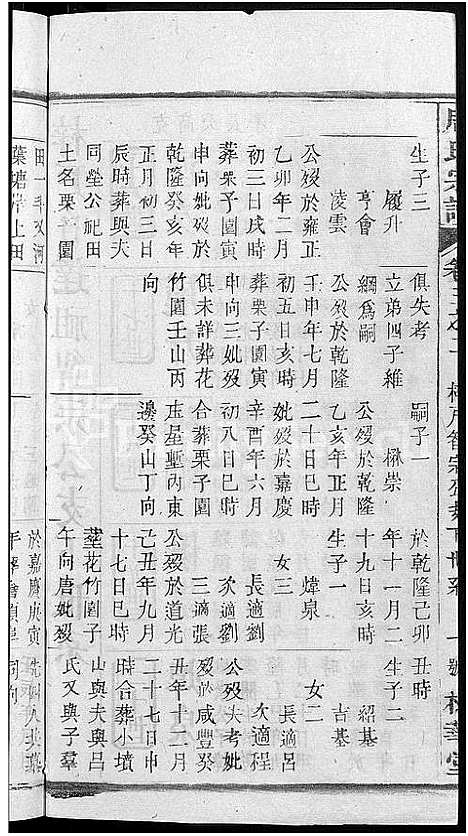 氏宗譜
生子三
履升
亨會
凌雲
公歿於雍正
乙卯年二月
初三日戌時
葬栗子園寅
申向妣歿於
乾隆癸亥年
正月初三日
辰時葬與夫
同塋公祀田
土名栗子園
俱失考
立弟四子維
綱爲嗣
公歿於乾隆
壬申年七月
初五日亥時
葬栗子園寅
申向三妣歿
俱未詳葬花
竹園壬山丙
向
嗣子一
楸崇
公歿於乾隆
乙亥年正月
二十日巳時
妣歿於嘉慶
辛酉年六月
初八日巳時
合葬栗子園
星塹內東
邊癸山丁向
於乾隆己卯
年十一月二
十九日亥時
生子一
煒泉
女三
長適劉
次適劉
三適張
公歿於道光
己丑年九月
十七日巳時
塟花竹園子
午向唐妣歿
於嘉慶庚寅
丑時
生子二
紹基
吉基
女二
長適呂
次適程
公歿失考妣
歿於咸豐癸
丑年十二月
二十七日申
時合葬小墳
山與夫與呂
氏又與子羣